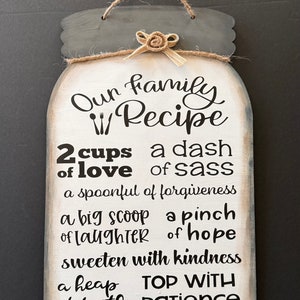 Our Family
Recipe
2 cups of love
a dash of sass
a spoonful of forgiveness
a big scoop of laughter
a pinch of hope
sweeten with kindness
a heap
TOP WITH
PATIENCE